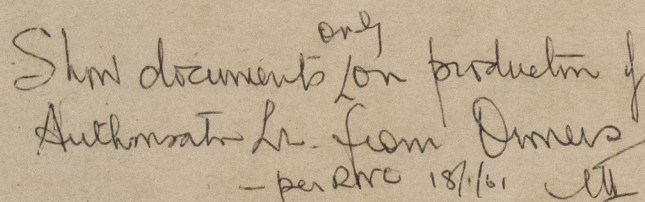 Show documents only on production of
Authorisatn Lr. from Owners
- per RWC 18/1/61